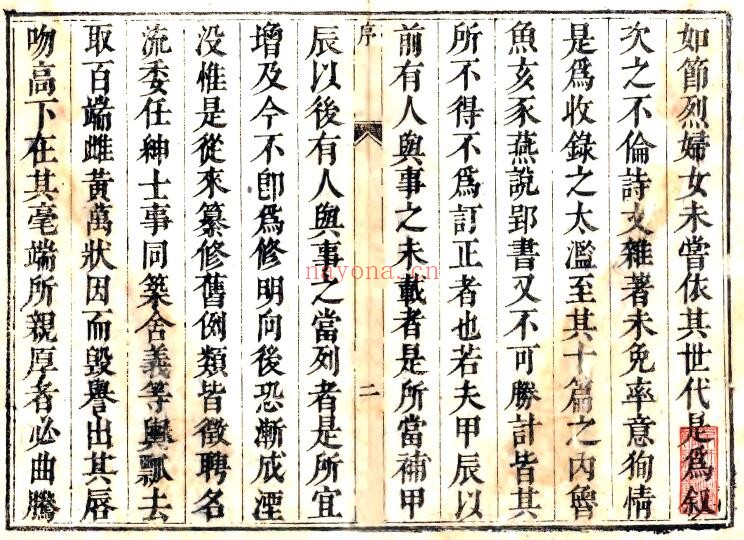 如節烈婦女未嘗依其世代是爲叙
次之不倫詩文雜著未免率意狥情
是爲收錄之太濫至其十篇之內魯
魚亥豕燕說郢書又不可勝計皆其
所不得不爲訂正者也若夫甲辰以
前有人與事之未載者是所當補甲
序
二
辰以後有人與事之當列者是所宜
增及今不卽爲修明向後恐漸成湮
没惟是從來纂修舊例類皆徵聘名
流委任紳士事同築舍義等輿瓢去
取百端雌黃萬狀因而毀譽出其唇
吻高下在其毫端所親厚者必曲騰
nayona.cn